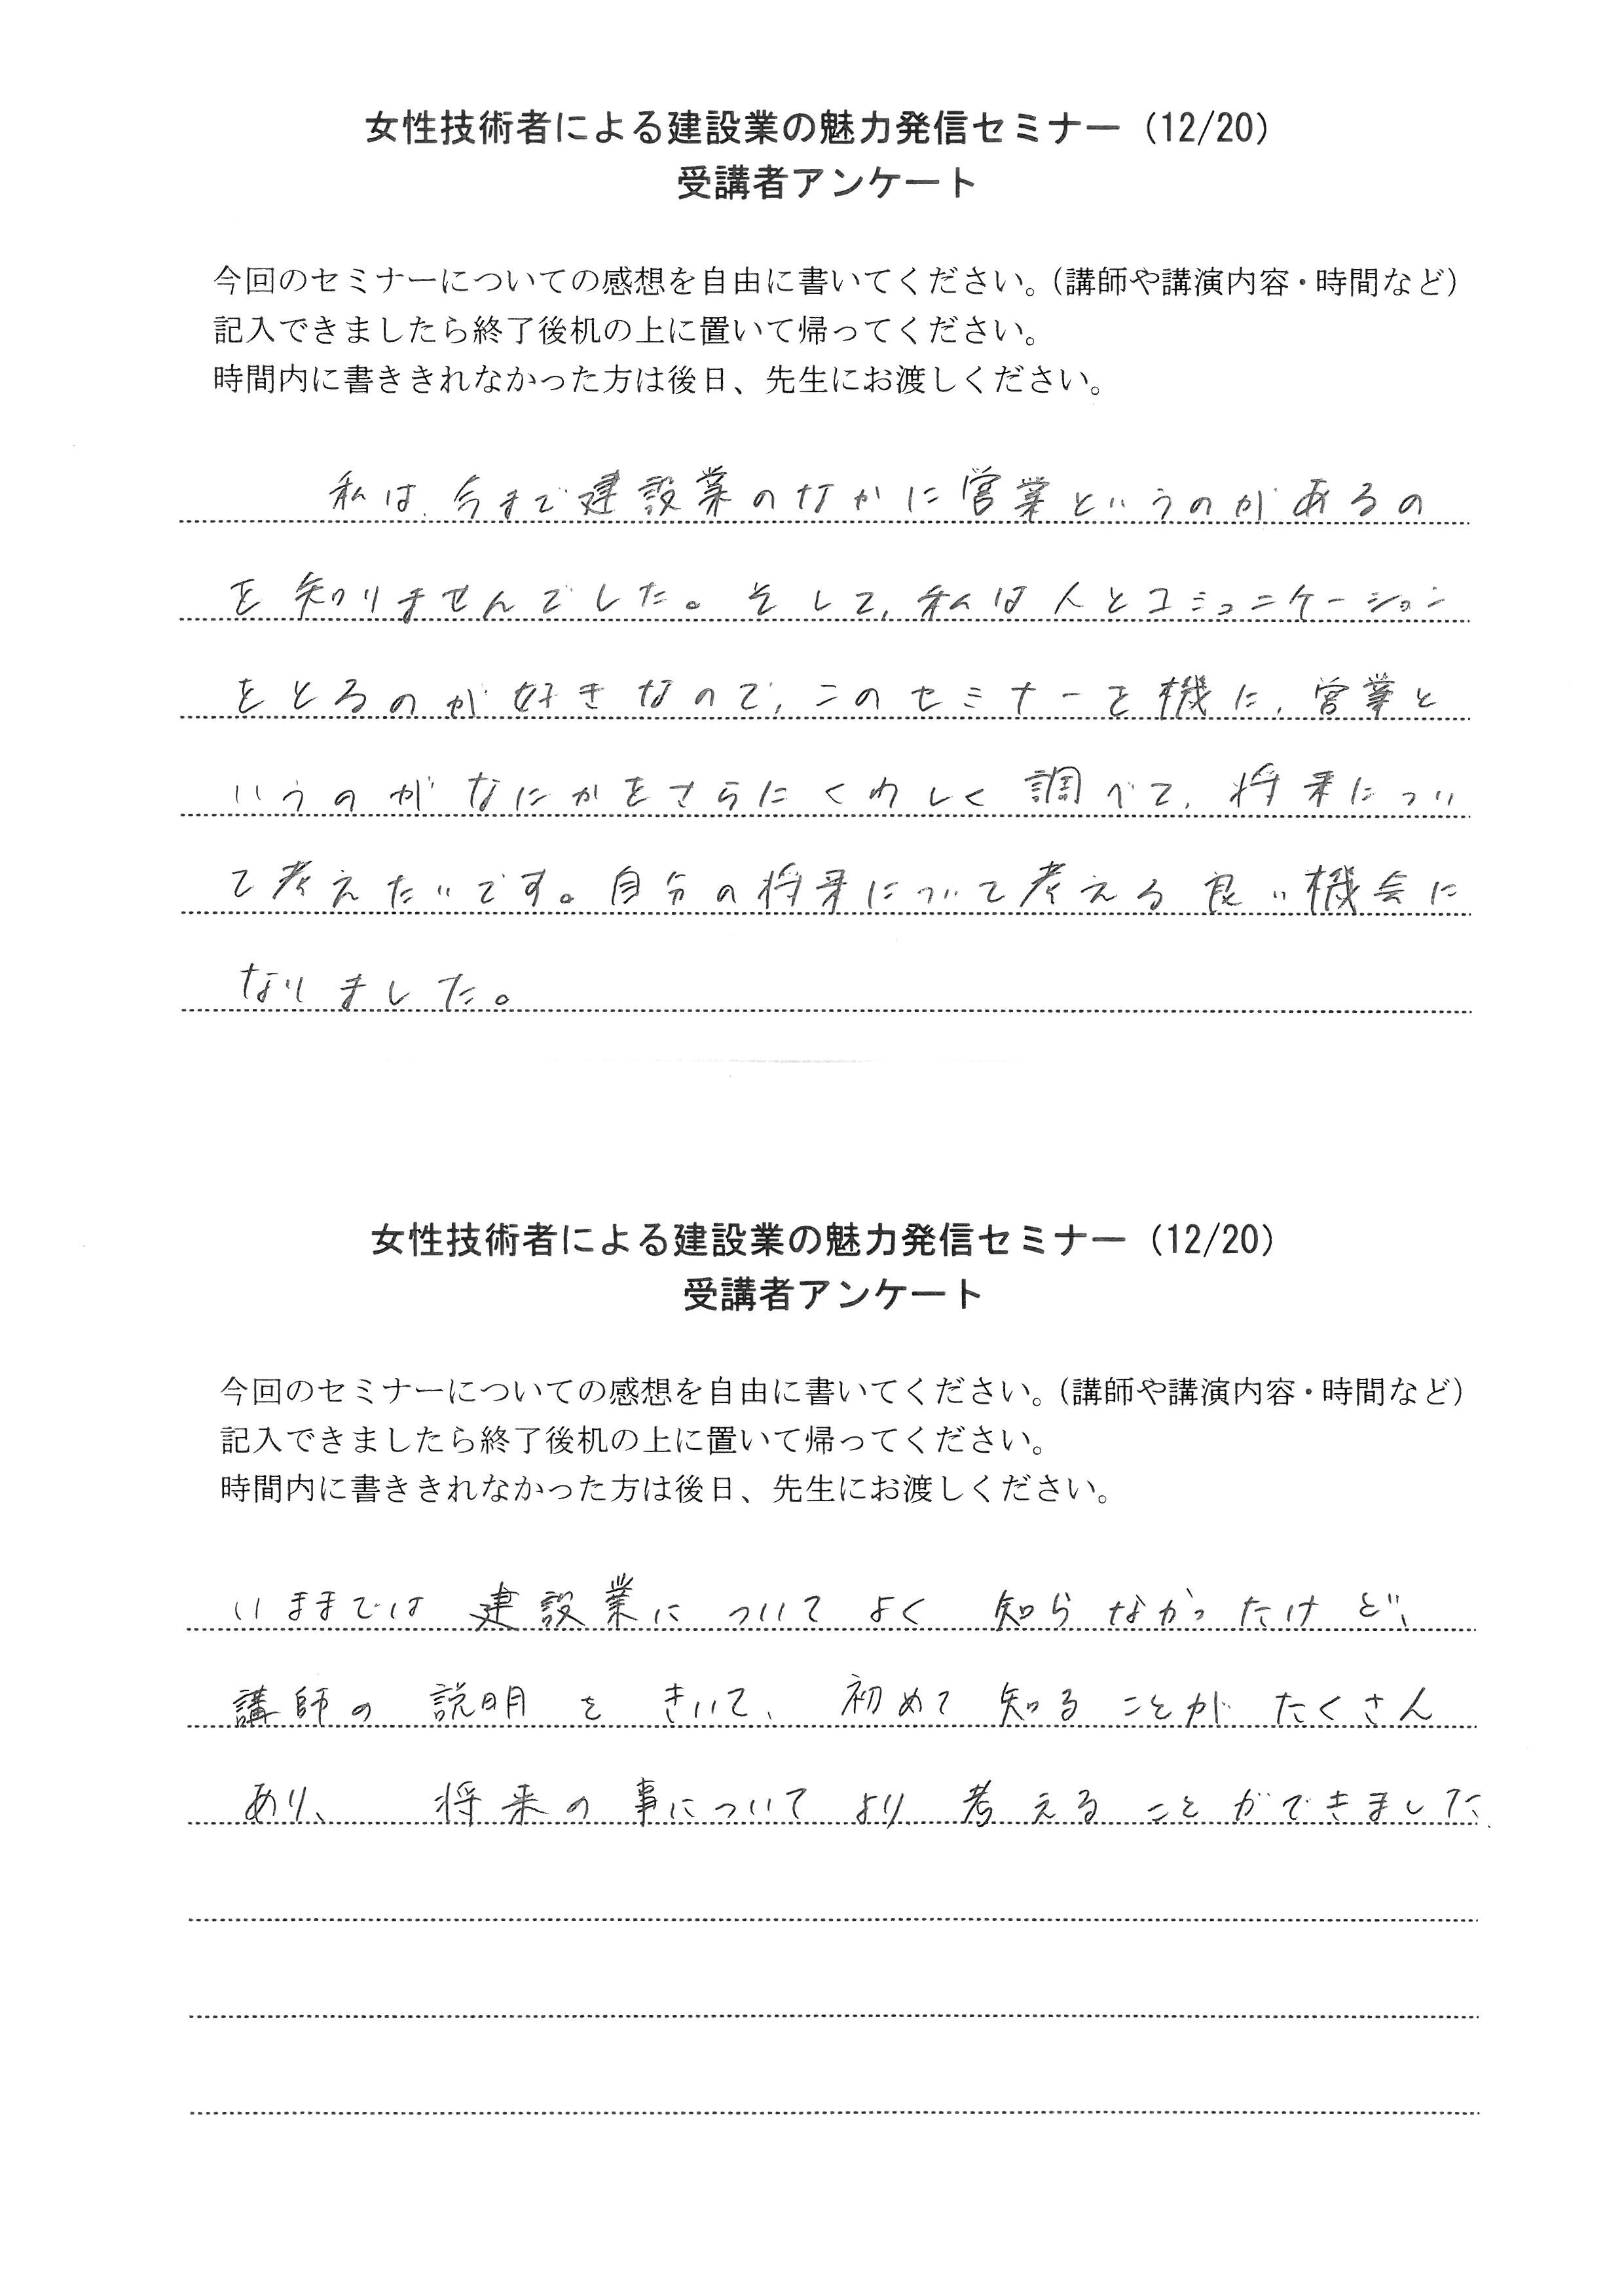 女性技術者による建設業の魅力発信セミナー（12/20）
受講者アンケート
今回のセミナーについての感想を自由に書いてください。（講師や講演内容・時間など）
記入できましたら終了後机の上に置いて帰ってください。
時間内に書ききれなかった方は後日、先生にお渡しください。
私は、今まで建設業のなかに営業というのがあるの
を知りませんでした。そして、私は人とコミュニケーション
をとるのが好きなので、このセミナーを機に、営業と
いうのがなにかをさらにくわしく調べて、将来につい
て考えたいです。自分の将来について考える良い機会に
なりました。
女性技術者による建設業の魅力発信セミナー（12/20）
受講者アンケート
今回のセミナーについての感想を自由に書いてください。（講師や講演内容・時間など）
記入できましたら終了後机の上に置いて帰ってください。
時間内に書ききれなかった方は後日、先生にお渡しください。
いままでは建設業についてよく知らなかったけど、
講師の説明をきいて、初めて知ることがたくさん
あり、将来の事についてより考えることができました.